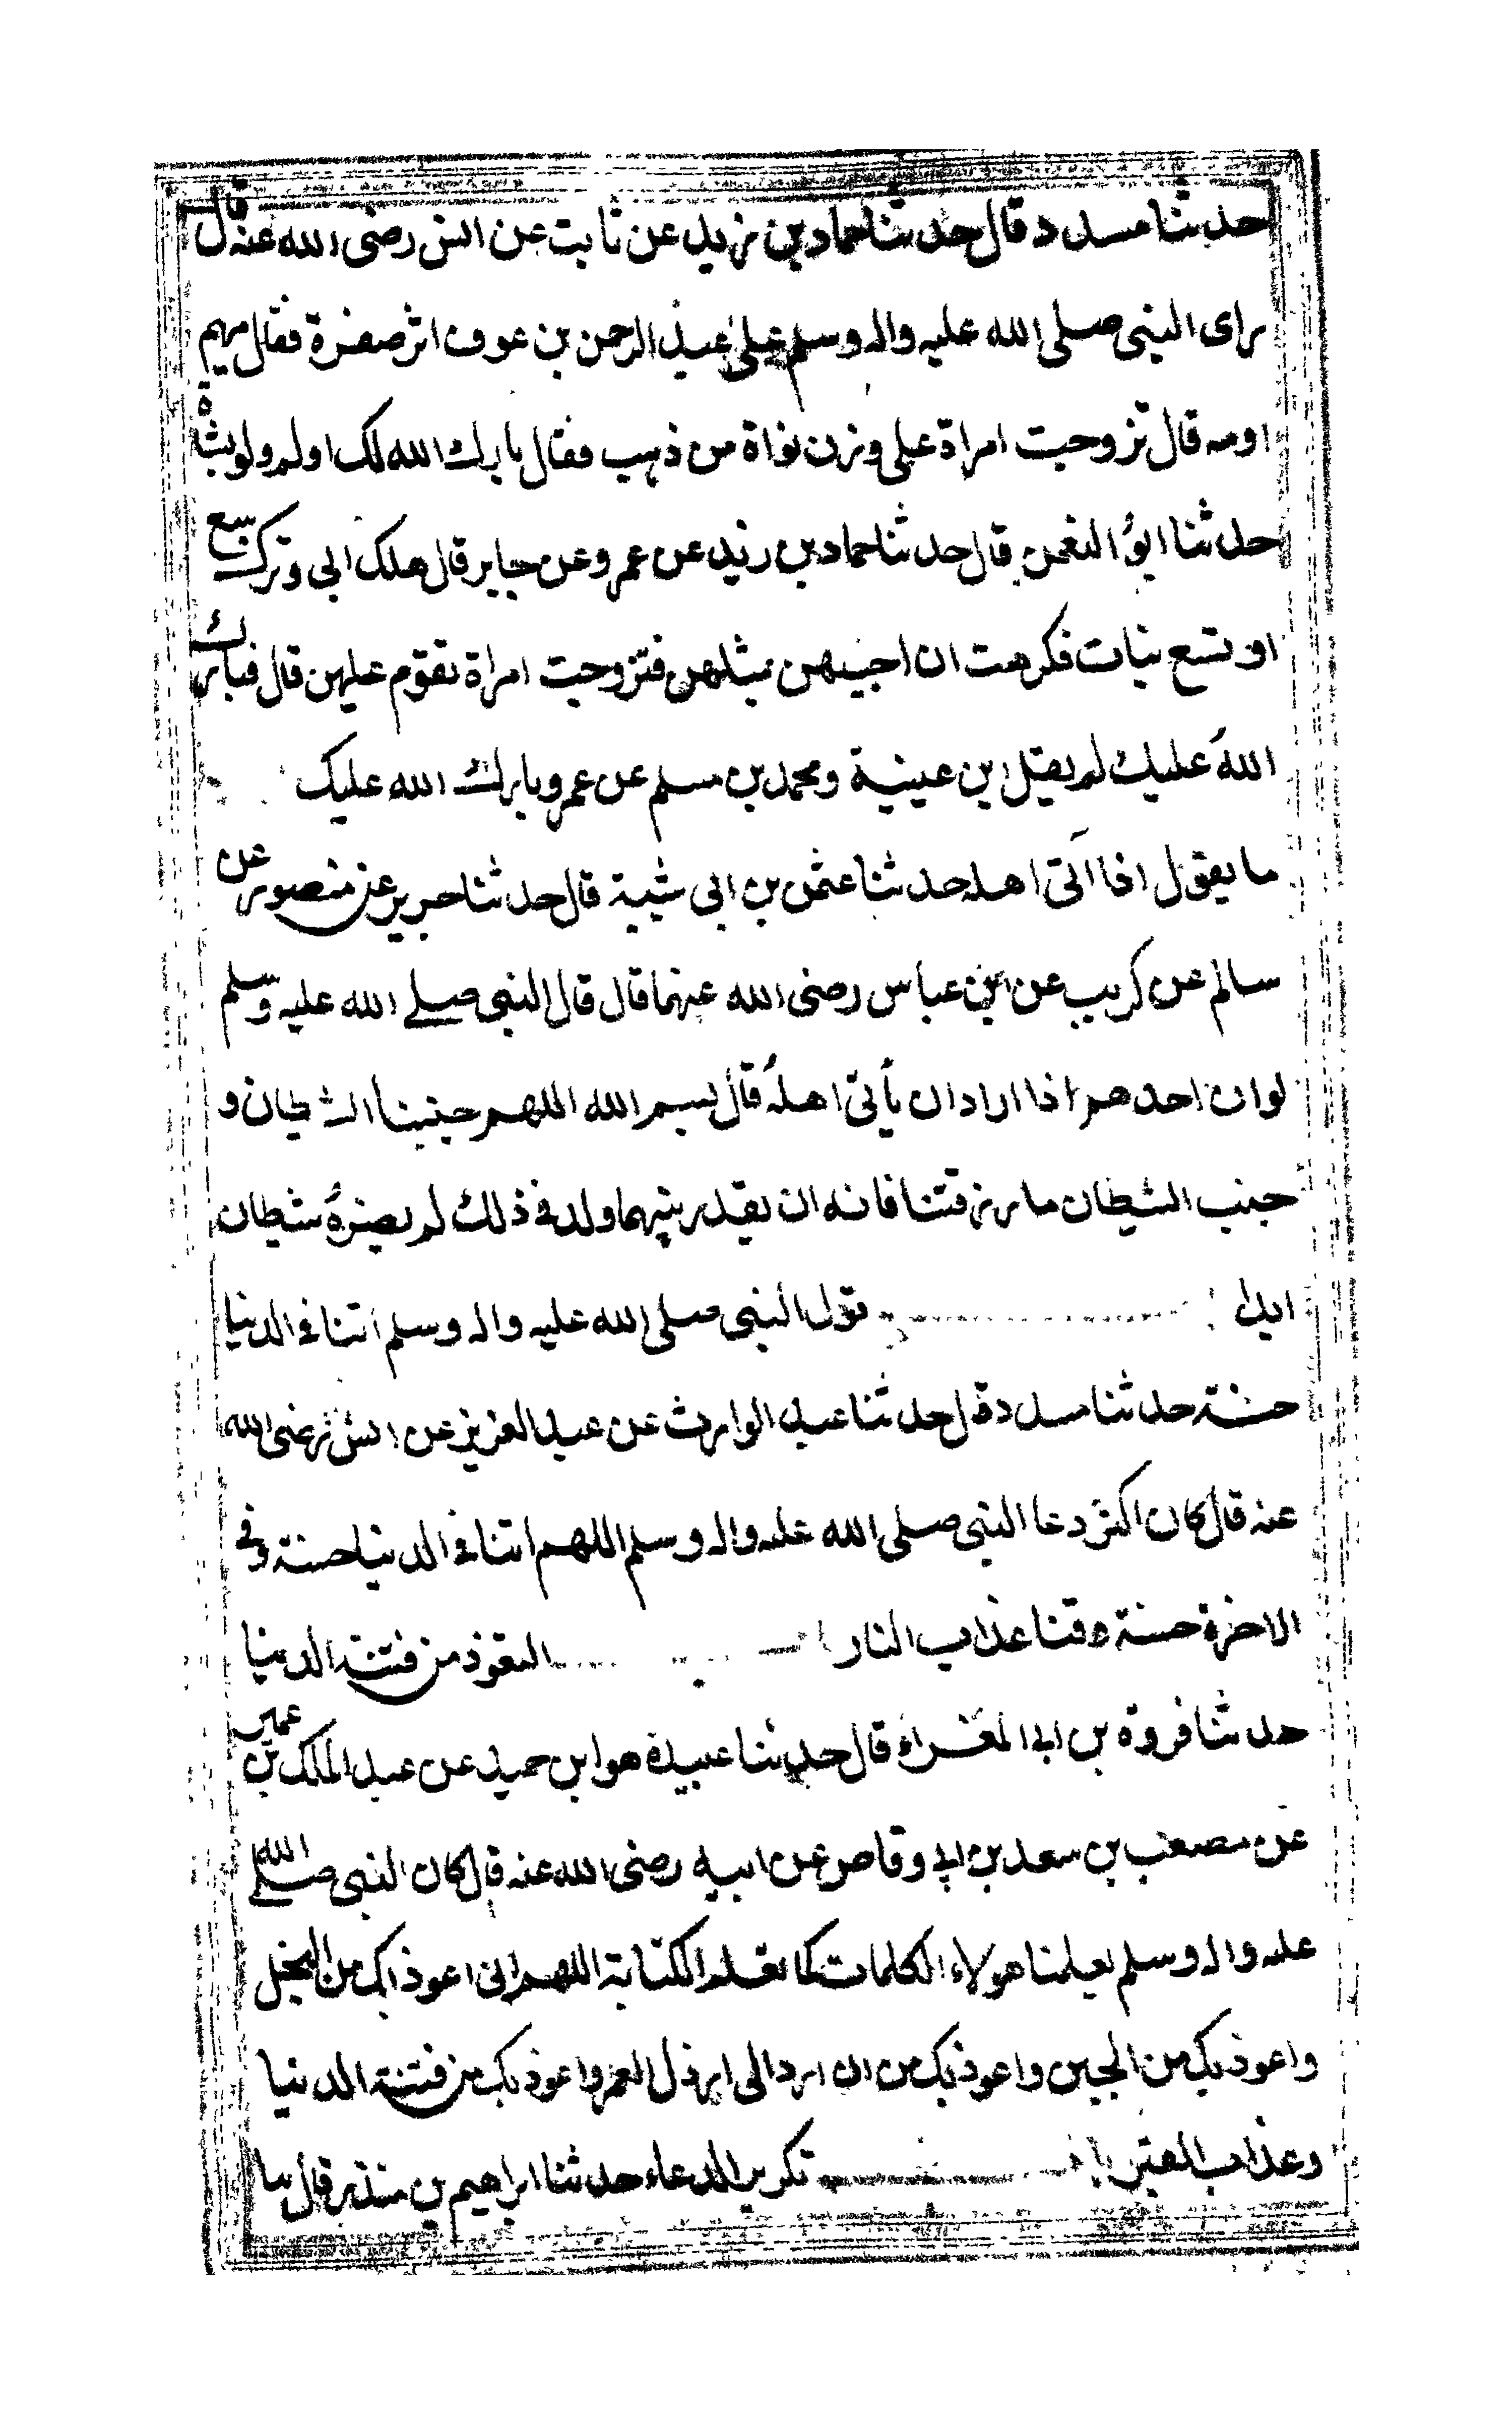 حدثنا مسدد قال حدثنا حماد بن زيد عن ثابت عن انس رضى الله عنه قال
راى النبى صلى الله عليه واله وسلم على عبد الرحمن بن عوف اثر صفرة فقال مهيم
اومه قال تزوجت امراة على وزن نواة من ذهب فقال بارك الله لك اولم ولو بشاة
حدثنا ابو النعمن قال حدثنا حماد بن زيد عن عمرو عن جابر قال هلك ابى وترك سبع
او تسع بنات فكرهت ان اجيبهن بمثلهن فتزوجت امراة تقوم عليهن قال فبارك
الله عليك لم يقل ابن عيينة ومحمد بن مسلم عن عمرو بارك الله عليك
ما يقول اذا اتى اهله حدثنا عثمن بن ابى شيبة قال حدثنا جرير عن منصور عن
سالم عن كريب عن ابن عباس رضى الله عنهما قال قال النبى صلى الله عليه وسلم
لو ان احدهم اذا اراد ان ياتى اهله قال بسم الله اللهم جنبنا الشيطان و
جنب الشيطان ما رزقتنا فانه ان يقدر بينهما ولد فى ذلك لم يضره شيطان
ابدا قول النبى صلى الله عليه واله وسلم اتنا فى الدنيا
حسنة حدثنا مسدد قال حدثنا عبد الوارث عن عبد العزيز عن انس رضى الله
عنه قال كان اكثر دعا النبى صلى الله عليه واله وسلم اللهم اتنا فى الدنيا حسنة وفى
الاخرة حسنة وقنا عذاب النار التعوذ من فتنة الدنيا
حدثنا فروة بن ابى المغراء قال حدثنا عبيدة هو ابن حميد عن عبد الملك بن عمير
عن مصعب بن سعد بن ابى وقاص عن ابيه رضى الله عنه قال كان النبى صلى الله
عليه واله وسلم يعلمنا هولاء الكلمات كما تعلم الكتابة اللهم انى اعوذ بك من البخل
واعوذ بك من الجبن واعوذ بك من ان ارد الى ارذل العمر واعوذ بك من فتنة الدنيا
وعذاب القبر تكرير الدعاء حدثنا ابراهيم بن منذر قال ثنا